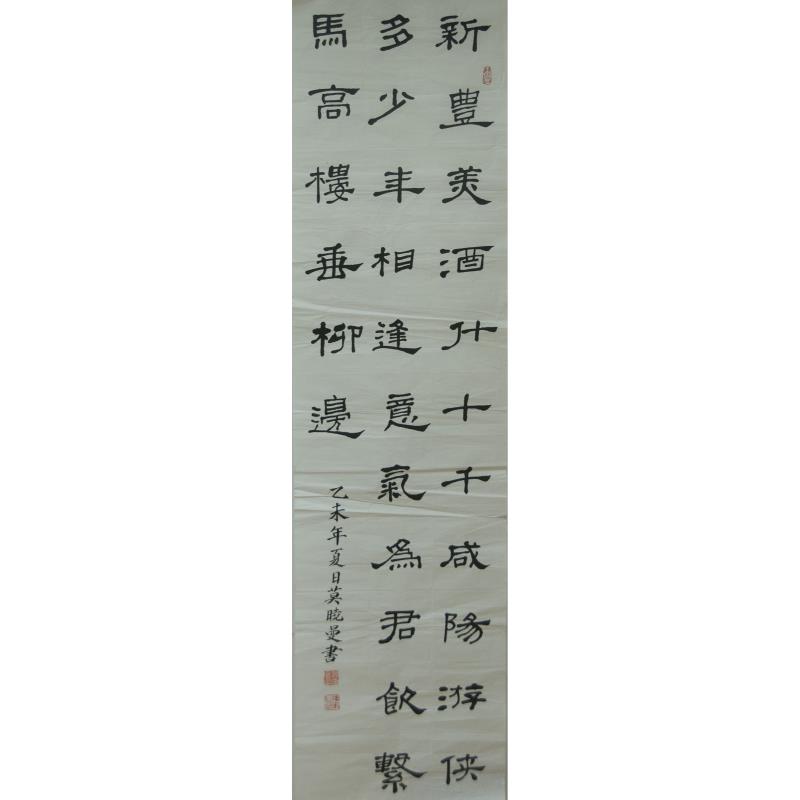 新豐美酒什十千咸陽游侠
多少年相逢意氣為君飲繫
馬高樓垂柳邊
乙未年夏日莫曉曼書